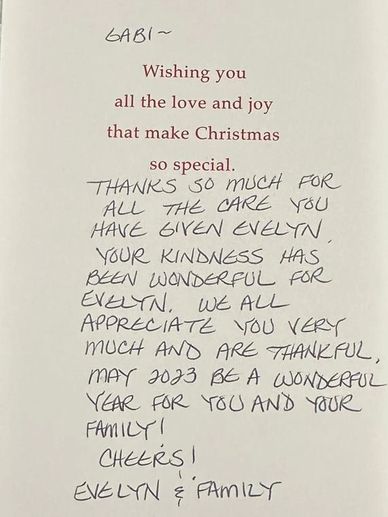 GABI~
Wishing you
all the love and joy
that make Christmas
so special.
THANKS SO MUCH FOR
ALL THE CARE YOU
HAVE GIVEN EVELYN.
YOUR KINDNESS HAS
BEEN WONDERFUL FOR
EVELYN. WE ALL
APPRECIATE YOU VERY
MUCH AND ARE THANKFUL.
MAY 2023 BE A WONDERFUL
YEAR FOR YOU AND YOUR
FAMILY!
CHEERS!
EVELYN & FAMILY